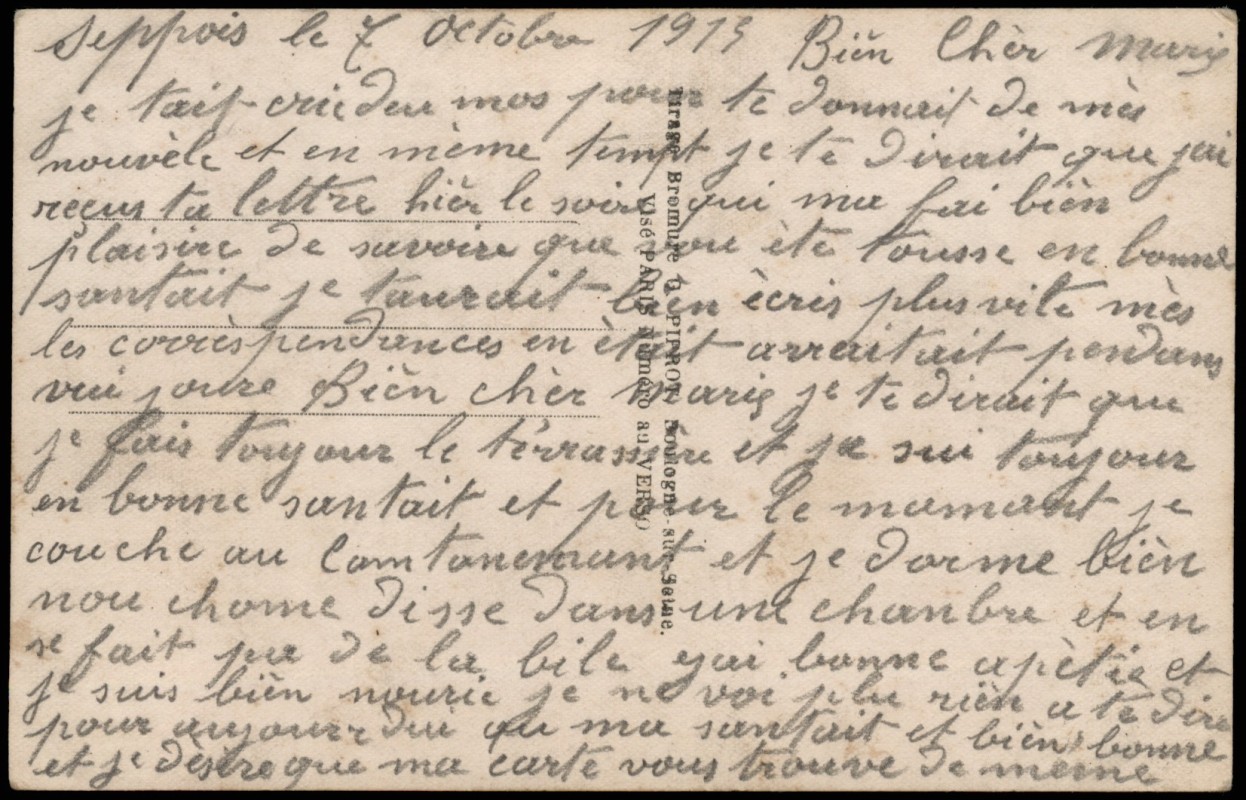 Seppois le 7 Octobre 1915 Bièn Chèr Marie
je tait crie deu mos pour te donnait de mès
nouvèle et en mème tempt je te dirait que jai
reçus ta lettre hièr le soire qui ma fai bièn
plaisire de savoire que vou ète tousse en bonne
santait je taurait bièn ècris plus vite mès
les corrèspendances en ètait arraitait pendans
vui joure Bièn chèr Marie je te dirait que
je fais toujour le tèrrassière et je sui toujour
en bonne santait et pour le momant je
couche au Cantonemant et je dorme bièn
nou chome disse dans une chanbre et en
se fait pa de la bile yai bonne apètie et
je suis bièn nourie je ne voi plu rièn a te dire
pour aujourdui qu ma santait et bièn bonne
et je dèsire que ma carte vous trouve de meme
Tirage Bromure D. PIPROT Boulogne-sur-Seine.
Visé PARIS Numéro au VERSO